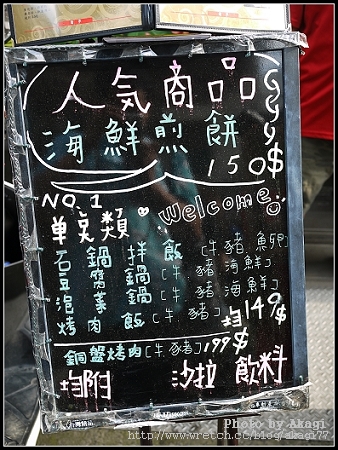 人氣商品
海鮮煎餅
150$
NO.1
welcome
單點類
石鍋拌飯〔牛.豬.魚卵〕
豆腐鍋〔牛.豬.海鮮〕
泡菜鍋〔牛.豬.海鮮〕
烤肉飯 均149$
銅盤烤肉〔牛.豬〕199$
均附 沙拉 飲料
Photo by Akagi
http://www.wretch.cc/blog/akagi77